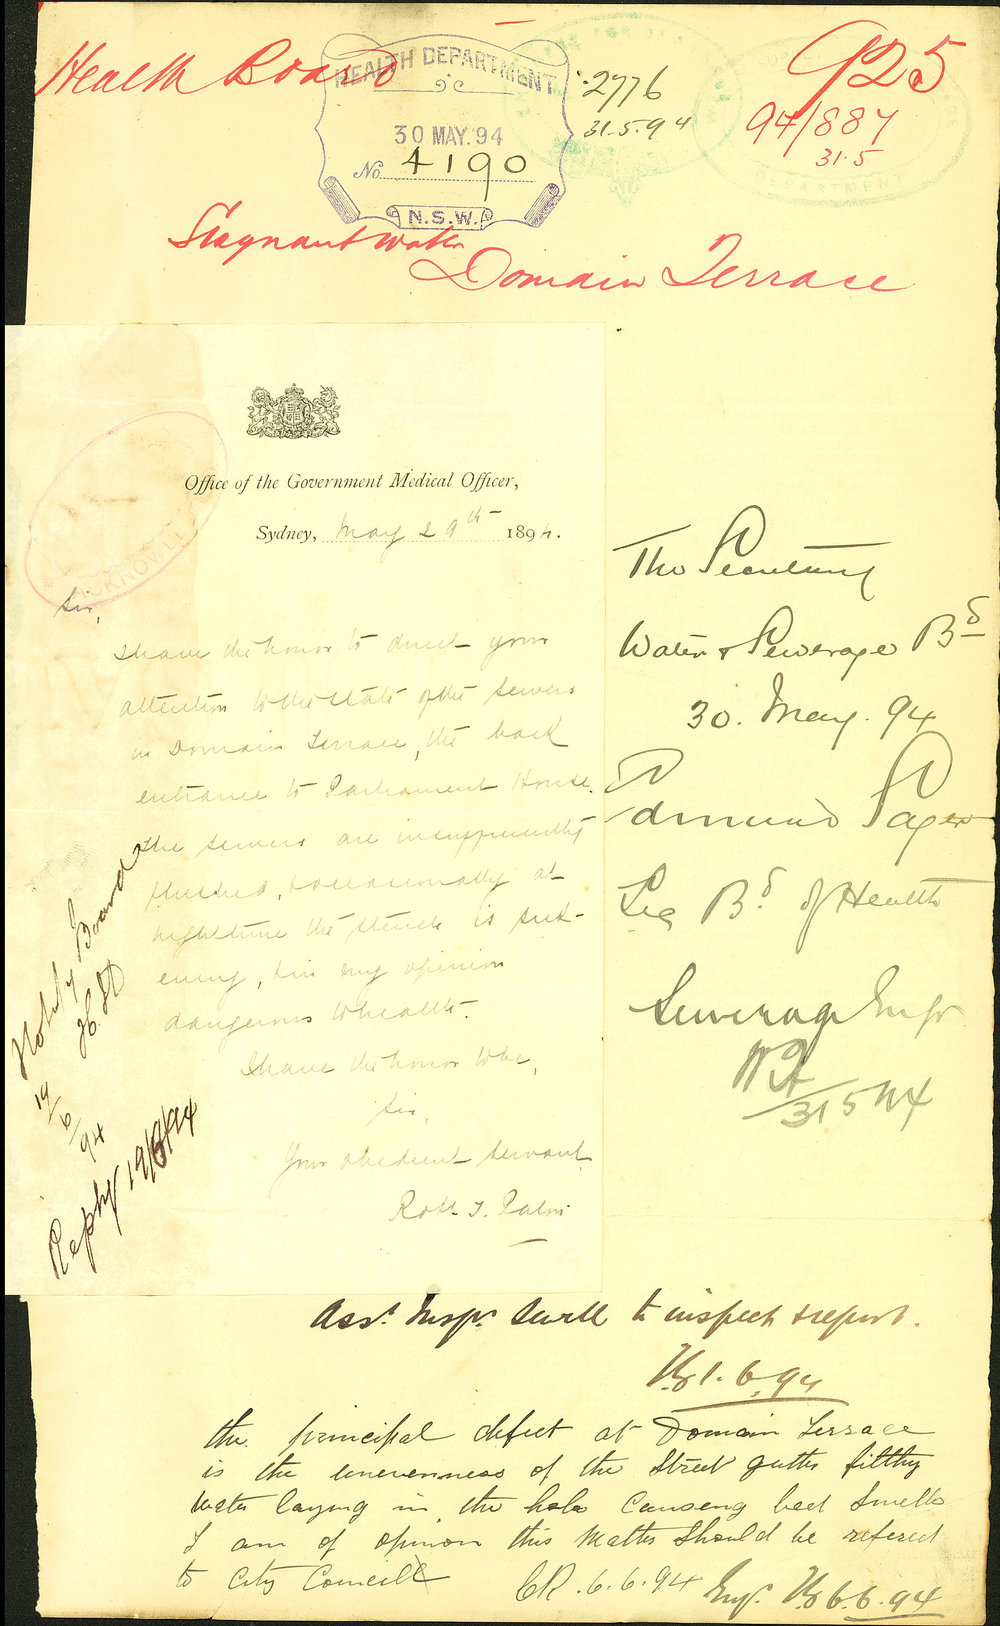 Health Board
HEALTH DEPARTMENT
30 MAY. 94
No 4190
N.S.W.
2776
31.5.94
925
94/887
31.5
DEPARTMENT
Stagnant water
Domain Terrace
Office of the Government Medical Officer,
Sydney, May 29th 1894.
ACKNOWLE
Sir,
I have the honor to direct your
attention to the state of the sewers
in Domain Terrace, the back
entrance to Parliament House.
The sewers are insufficiently
flushed, & occasionally at
nighttime the stench is sick-
ening, & in my opinion
dangerous to health.
I have the honor to be,
Sir,
Your obedient servant
Robt. T. Paton
Notify Board
19/6/94
Reply 19/6/94
The Secretary
Water & Sewerage Bd
30. May. 94
Edmund Sager
Sec Bd. of Health
Sewerage Engr
31 5 94
Asst. Inspr. Sewell to inspect & report.
1.6.94
the principal defect at Domain Terrace
is the unevenness of the Street gutter filthy
water laying in the hole Causeng bad Smells
I am of opinion this Matter Should be refered
to City Council
CR. 6.6.94
6.6.94